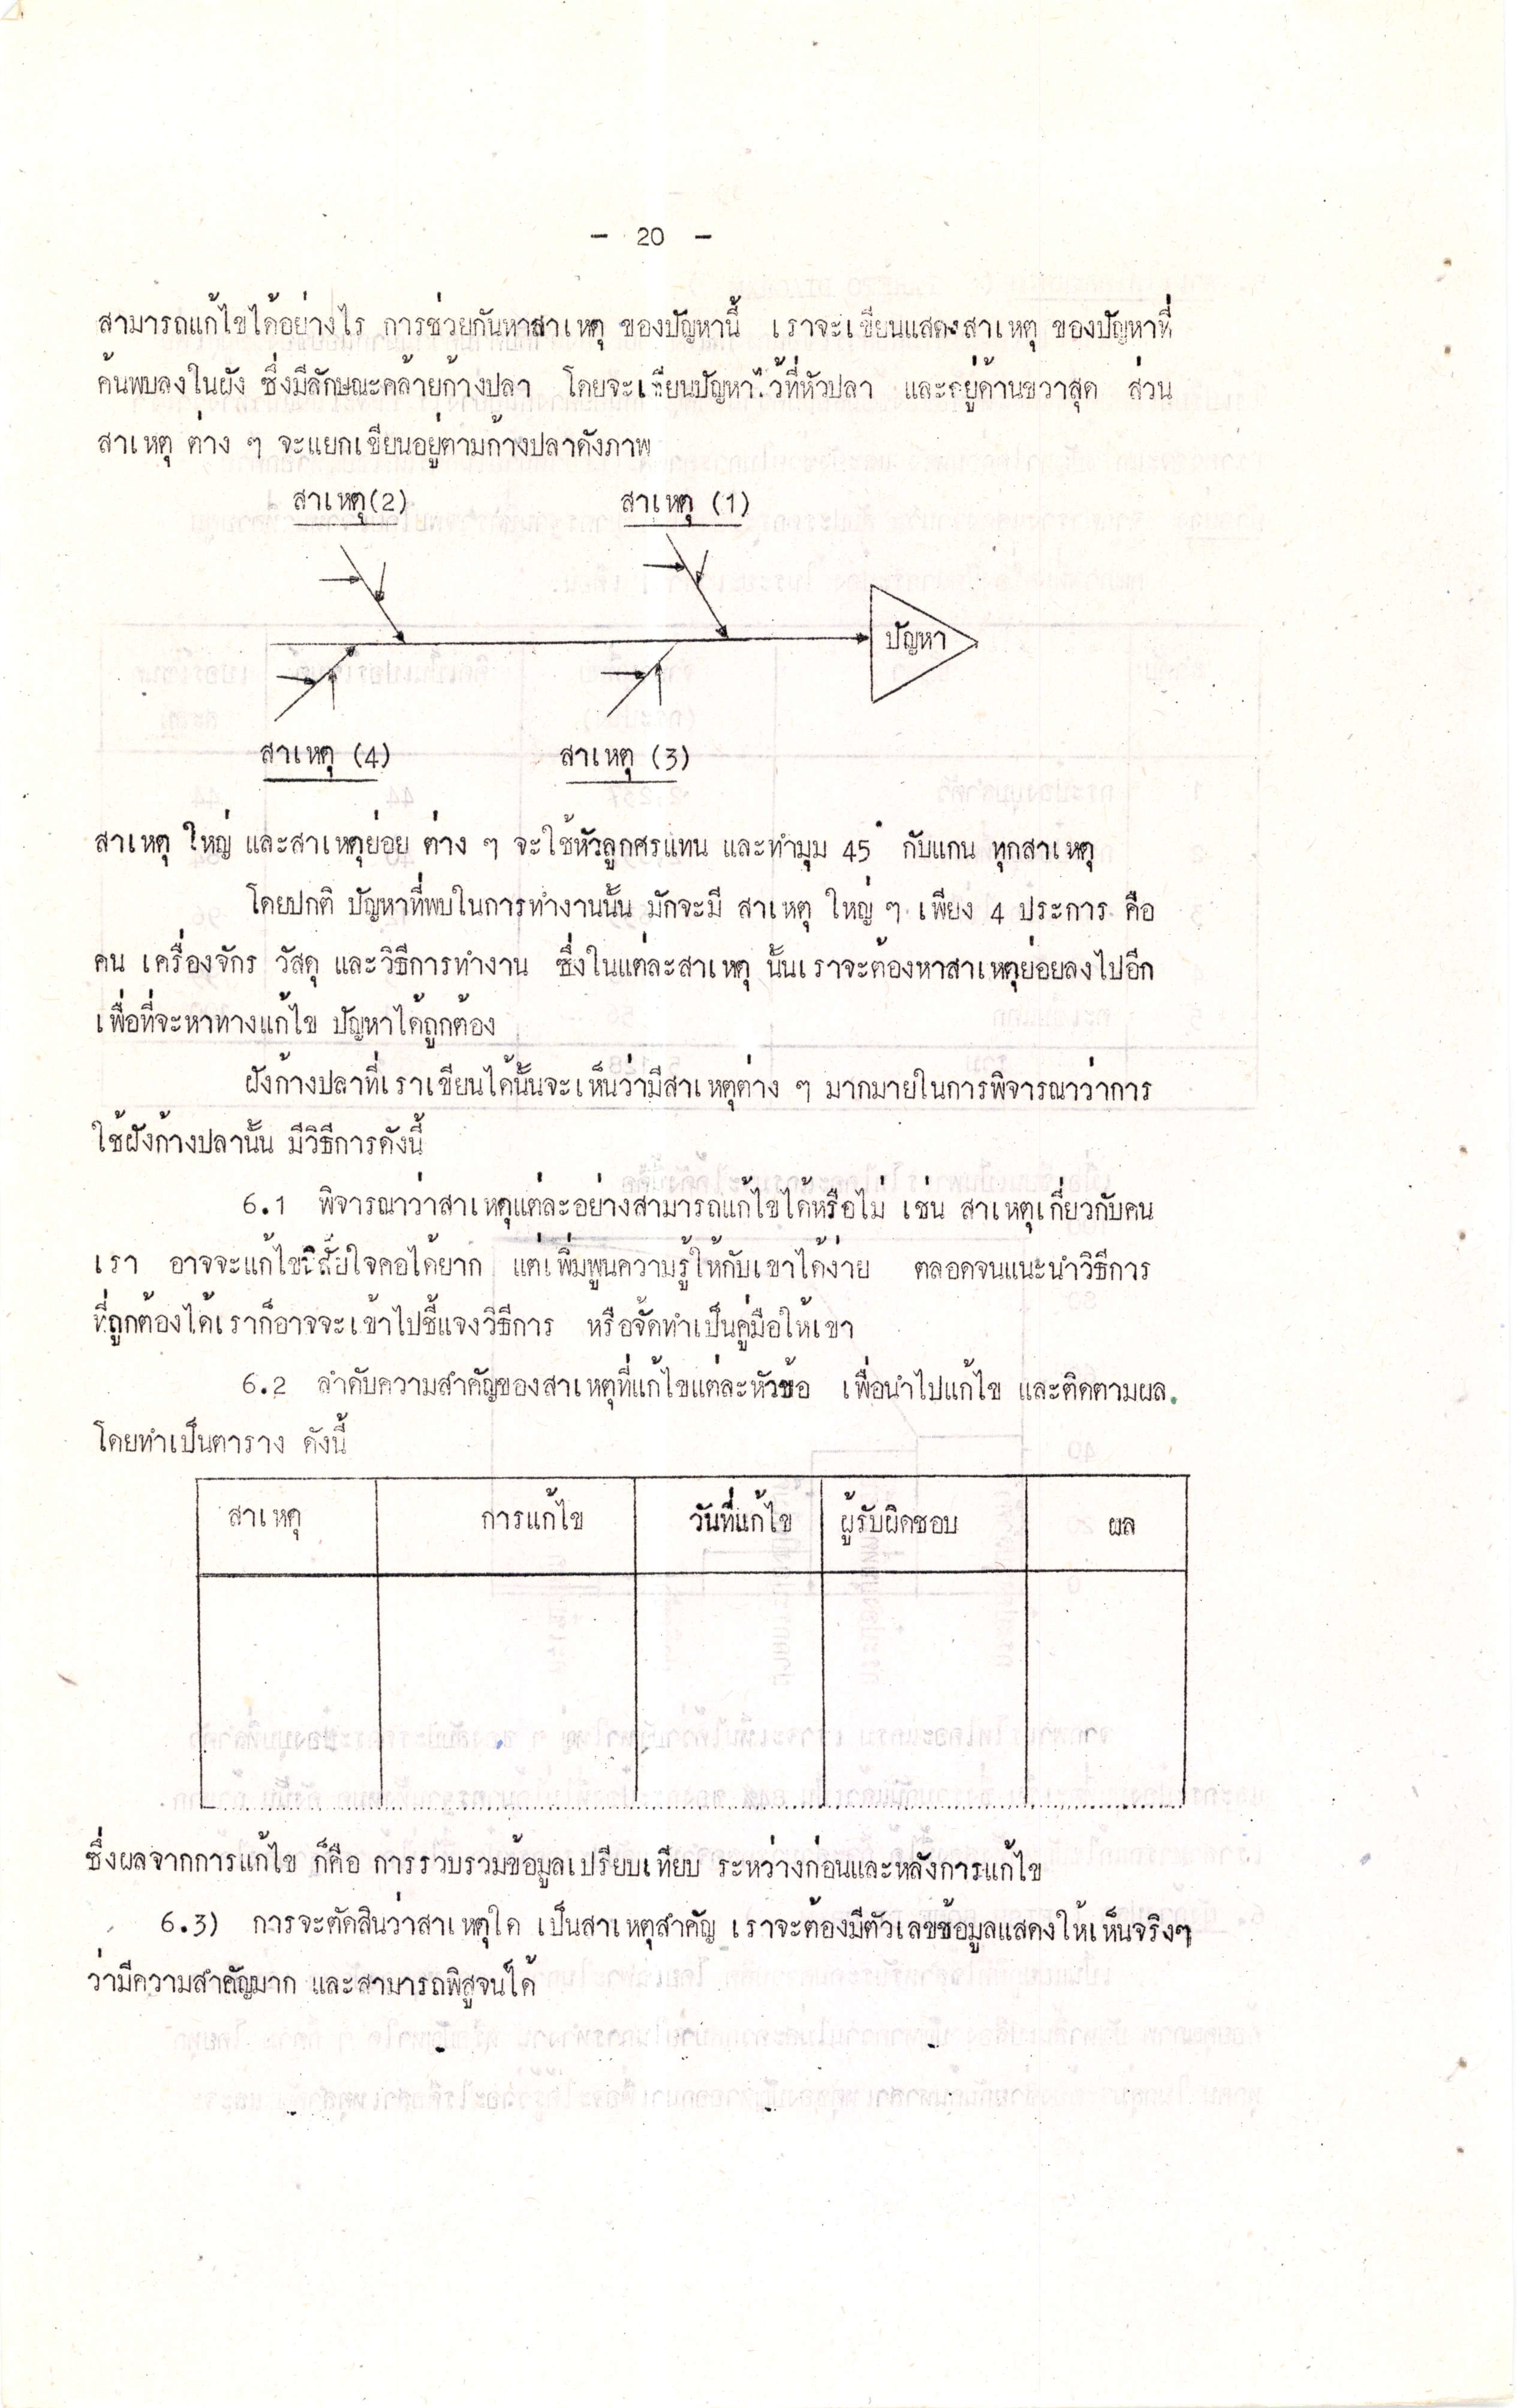 - 20 -
สามารถแก้ไขได้อย่างไร การช่วยกันหาสาเหตุ ของปัญหานี้ เราจะเขียนแสดงสาเหตุ ของปัญหาที่
ค้นพบลงในผัง ซึ่งมีลักษณะคล้ายก้างปลา โดยจะเขียนปัญหาไว้ที่หัวปลา และอยู่ด้านขวาสุด ส่วน
สาเหตุ ต่าง ๆ จะแยกเขียนอยู่ตามก้างปลาดังภาพ
สาเหตุ(2) สาเหตุ (1)
ปัญหา
สาเหตุ (4) สาเหตุ (3)
สาเหตุ ใหญ่ และสาเหตุย่อย ต่าง ๆ จะใช้หัวลูกศรแทน และทำมุม 45° กับแกน ทุกสาเหตุ
โดยปกติ ปัญหาที่พบในการทำงานนั้น มักจะมี สาเหตุ ใหญ่ ๆ เพียง 4 ประการ คือ
คน เครื่องจักร วัสดุ และวิธีการทำงาน ซึ่งในแต่ละสาเหตุ นั้นเราจะต้องหาสาเหตุย่อยลงไปอีก
เพื่อที่จะหาทางแก้ไข ปัญหาได้ถูกต้อง
ผังก้างปลาที่เราเขียนได้นั้นจะเห็นว่ามีสาเหตุต่าง ๆ มากมายในการพิจารณาว่าการ
ใช้ผังก้างปลานั้น มีวิธีการดังนี้
6.1 พิจารณาว่าสาเหตุแต่ละอย่างสามารถแก้ไขได้หรือไม่ เช่น สาเหตุเกี่ยวกับคน
เรา อาจจะแก้ไขนิสัยใจคอได้ยาก แต่เพิ่มพูนความรู้ให้กับเขาได้ง่าย ตลอดจนแนะนำวิธีการ
ที่ถูกต้องได้เราก็อาจจะเข้าไปชี้แจงวิธีการ หรือจัดทำเป็นคู่มือให้เขา
6.2 ลำดับความสำคัญของสาเหตุที่แก้ไขแต่ละหัวข้อ เพื่อนำไปแก้ไข และติดตามผล.
โดยทำเป็นตาราง ดังนี้
สาเหตุ การแก้ไข วันที่แก้ไข ผู้รับผิดชอบ ผล
ซึ่งผลจากการแก้ไข ก็คือ การรวบรวมข้อมูลเปรียบเทียบ ระหว่างก่อนและหลังการแก้ไข
6.3) การจะตัดสินว่าสาเหตุใด เป็นสาเหตุสำคัญ เราจะต้องมีตัวเลขข้อมูลแสดงให้เห็นจริงๆ
ว่ามีความสำคัญมาก และสามารถพิสูจน์ได้